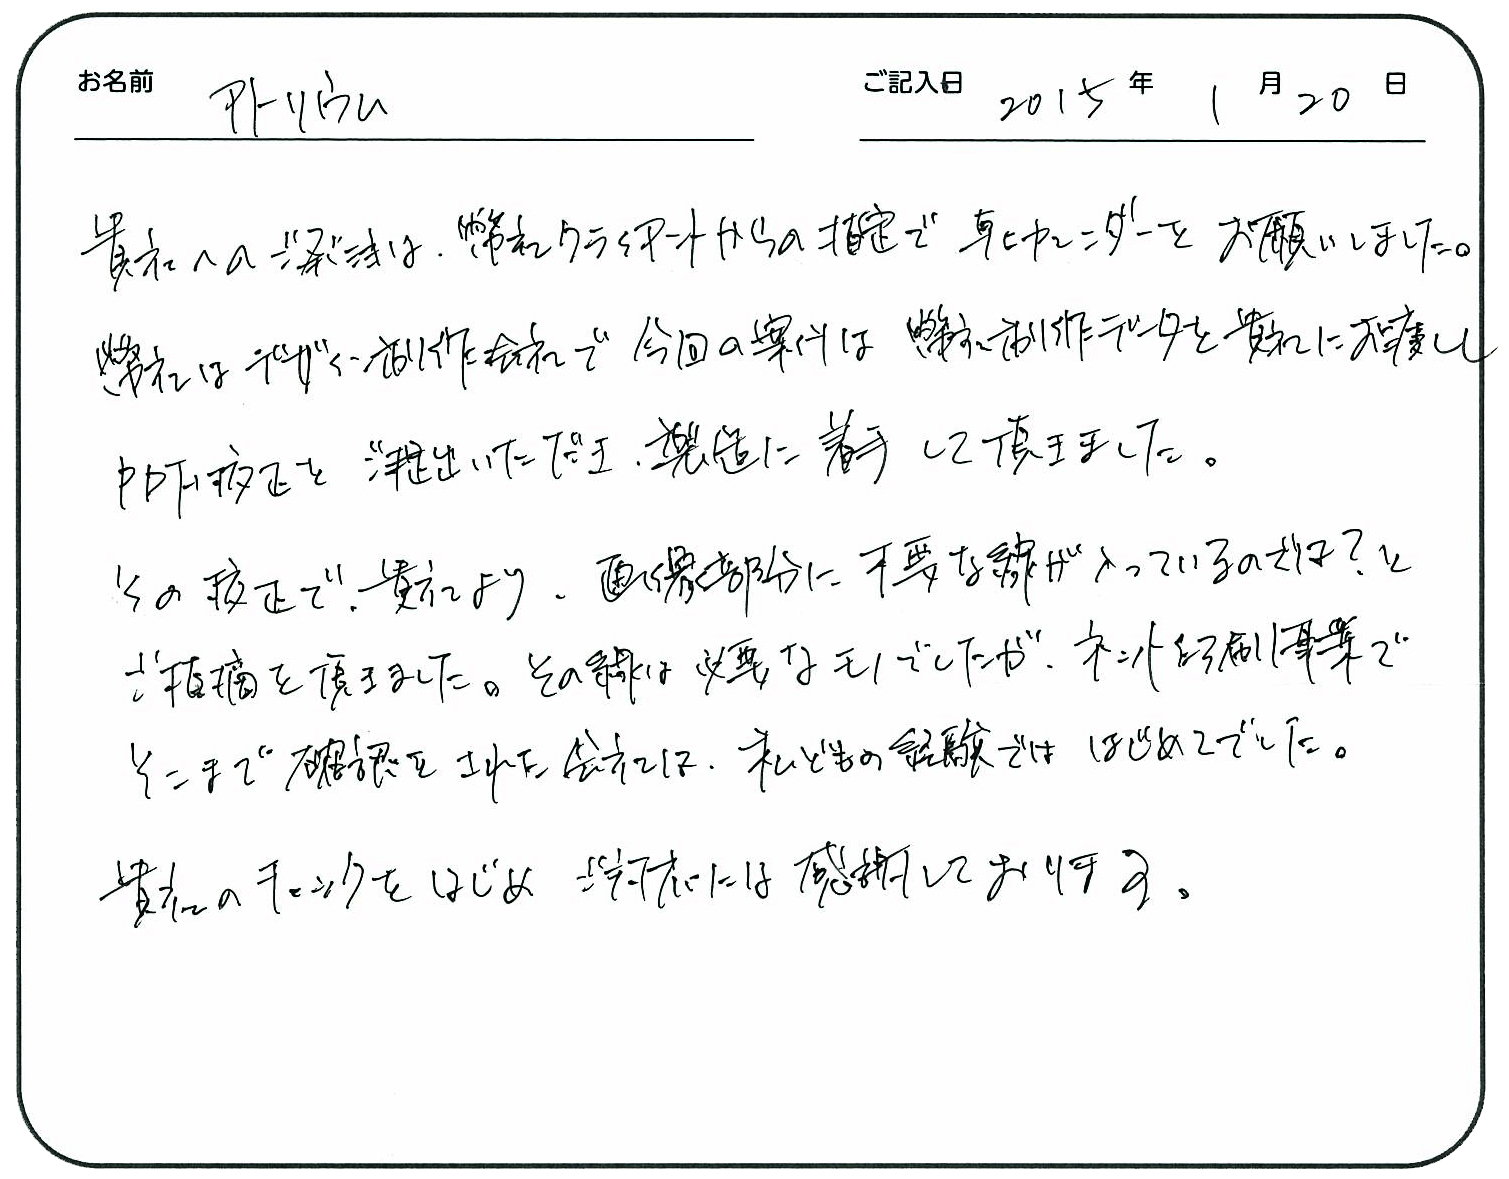 お名前 アトリウム ご記入日 2015年 1月20日
貴社へのご発注は、弊社クライアントからの指定で卓上カレンダーをお願いしました。
弊社はデザイン制作会社で今回の案件は弊社制作データを貴社にお渡しし
PDF校正をご提出いただき、製造に着手して頂きました。
その校正で、貴社より、画像部分に不要な線が入っているのでは?と
ご指摘を頂きました。その線は必要なモノでしたが、ネット印刷事業で
そこまで確認をされた会社は、私どもの経験でははじめてでした。
貴社のチェックをはじめご対応には感謝しております。